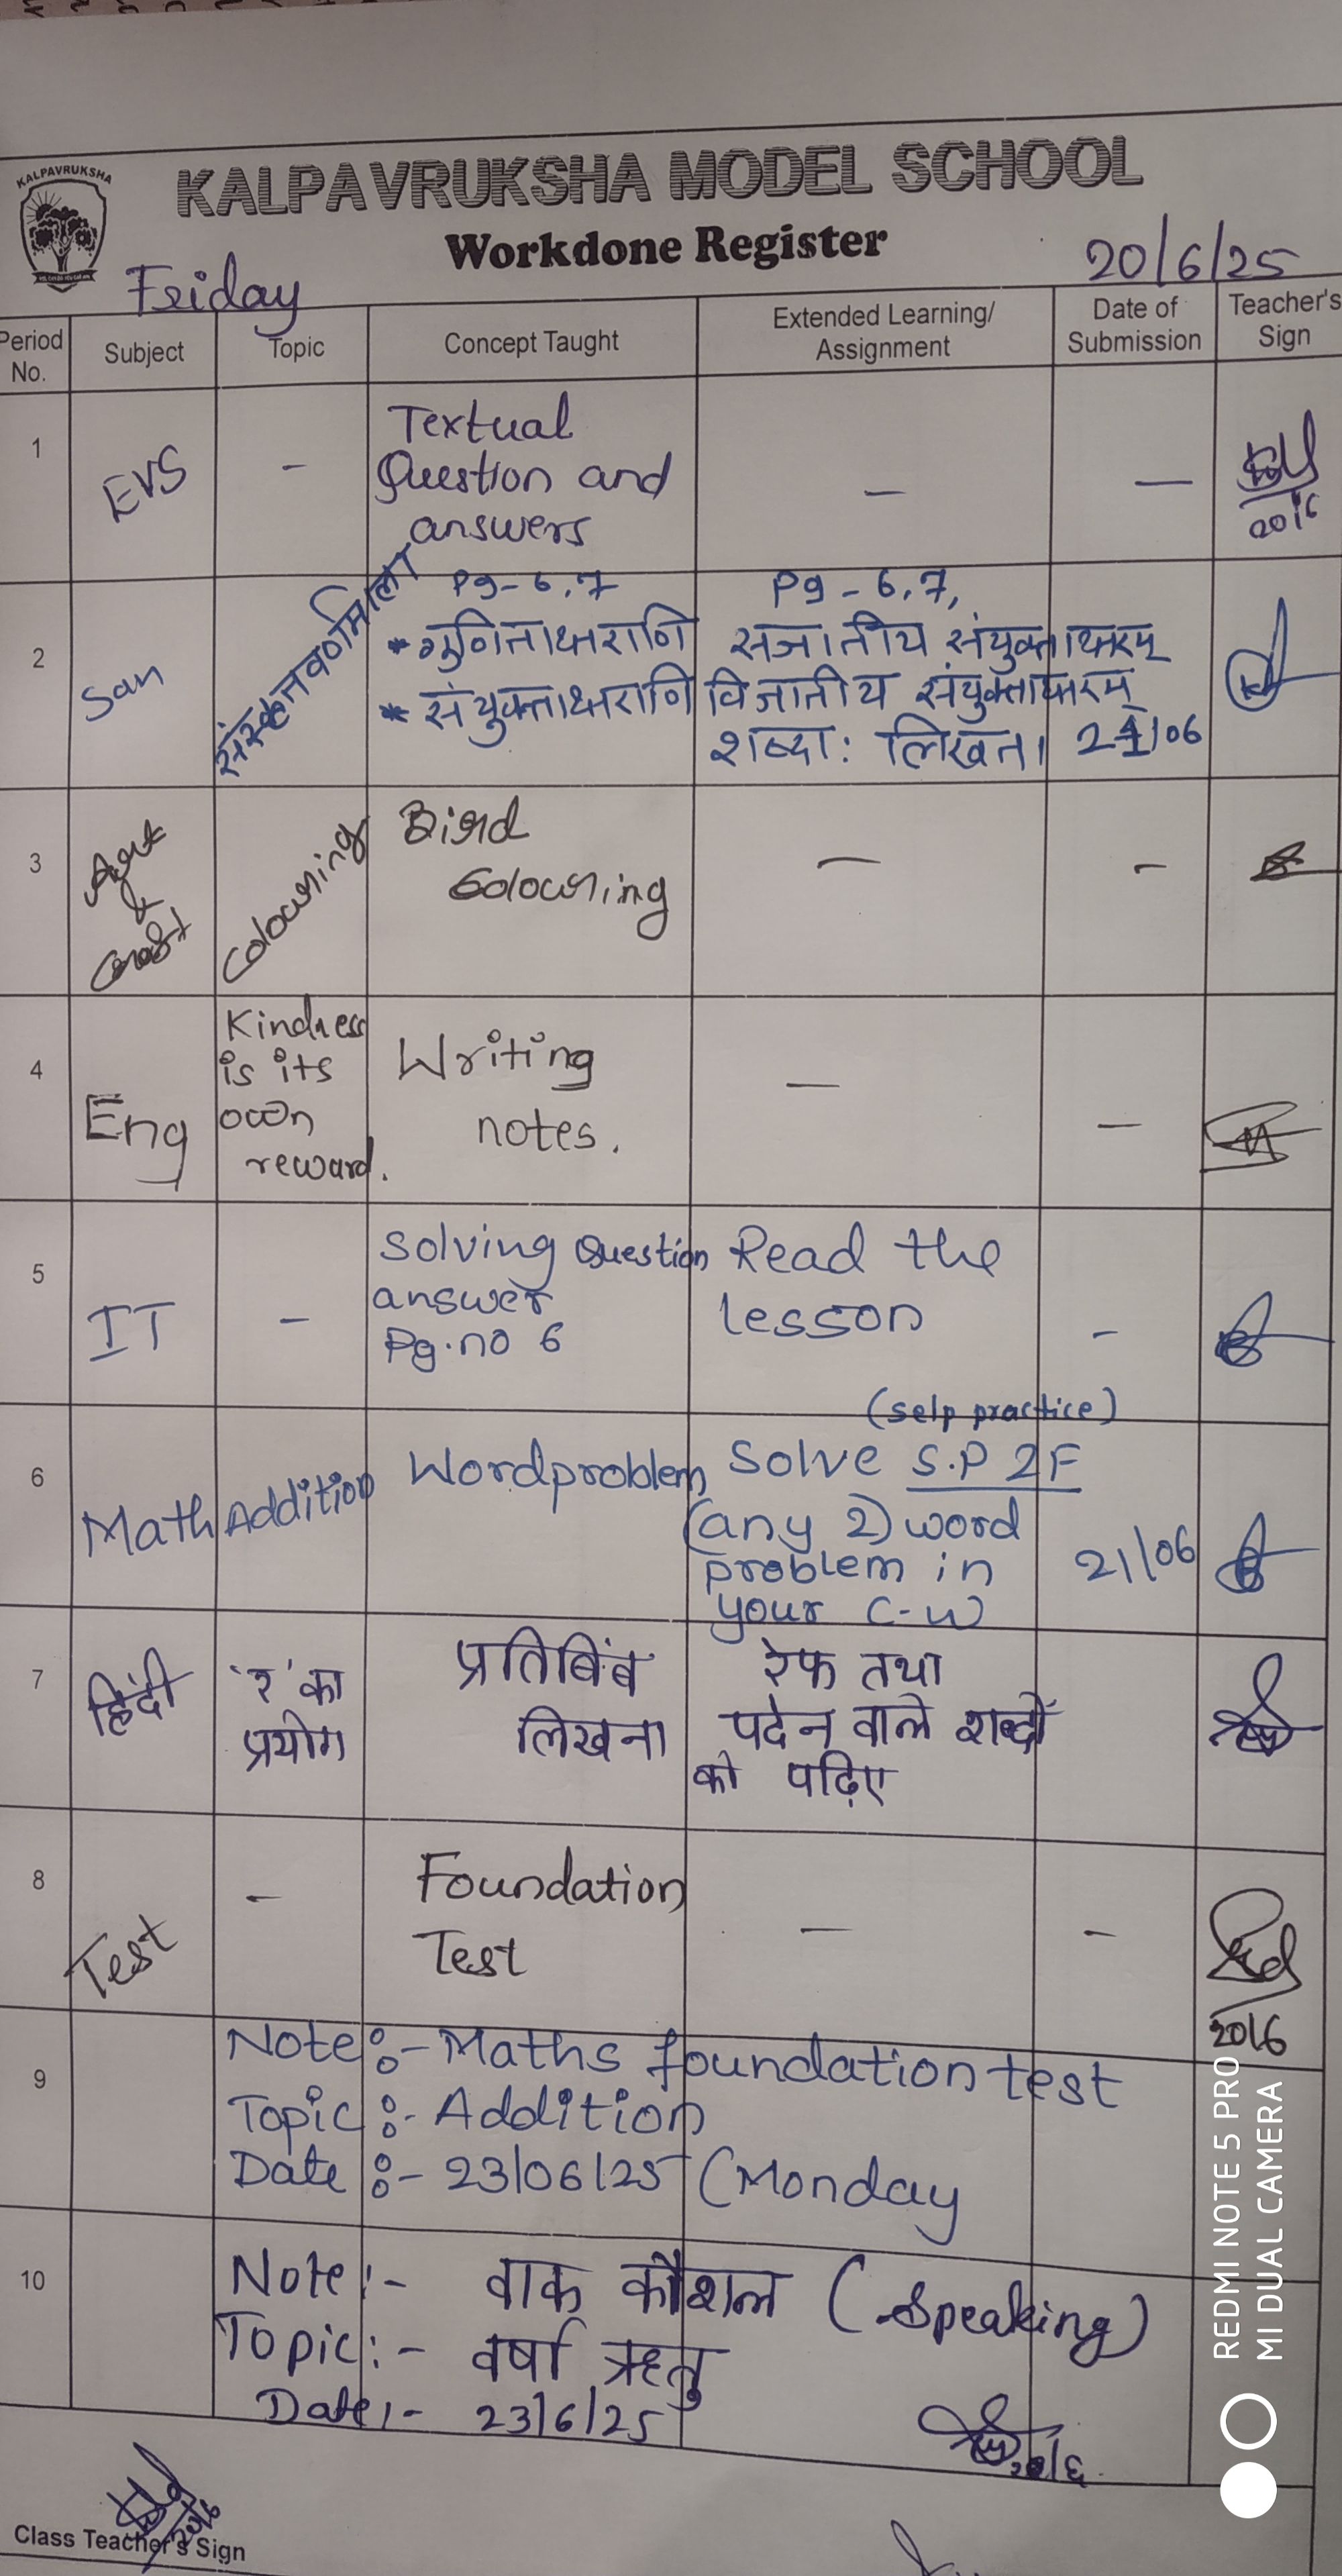 KALPAVRUKSHA
KALPAVRUKSHA MODEL SCHOOL
Workdone Register
Friday
20/6/25
Period No.
Subject
Topic
Concept Taught
Extended Learning/
Assignment
Date of
Submission
Teacher's
Sign
1
EVS
-
Textual
Question and
answers
-
-
20/6
2
San
संस्कृतवर्णमाला
Pg- 6,7
* गुणिताक्षराणि
* संयुक्ताक्षराणि
Pg - 6,7,
सजातीय संयुक्ताक्षरम्
विजातीय संयुक्ताक्षरम्
शब्दा: लिखत।
/06
3
Art
&
Craft
Colouring
Bird
Colouring
-
-
4
Eng
Kindness
is its
own
reward.
Writing
notes.
-
-
5
IT
-
Solving Question
answer
Pg.no 6
Read the
lesson
-
6
Math
Addition
Wordproblem
(selp practice)
Solve S.P 2F
(any 2) word
problem in
your C-W
21/06
7
हिंदी
'र' का
प्रयोग
प्रतिबिंब
लिखना
रेफ तथा
पदेन वाले शब्दों
को पढ़िए
8
Test
-
Foundation
Test
-
-
20/6
9
Note:- Maths foundation test
Topic:- Addition
Date:- 23/06/25 (Monday
10
Note:- वाक कौशल (Speaking)
Topic:- वर्षा ऋतु
Date:- 23/6/25
Class Teacher's Sign
REDMI NOTE 5 PRO
MI DUAL CAMERA